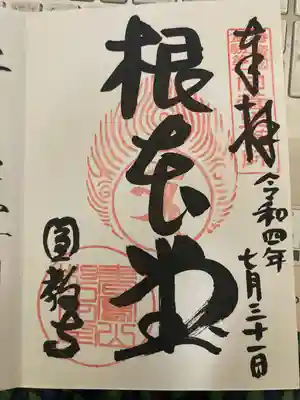 奉拝
令和四年七月三十一日
根本堂
圓教寺